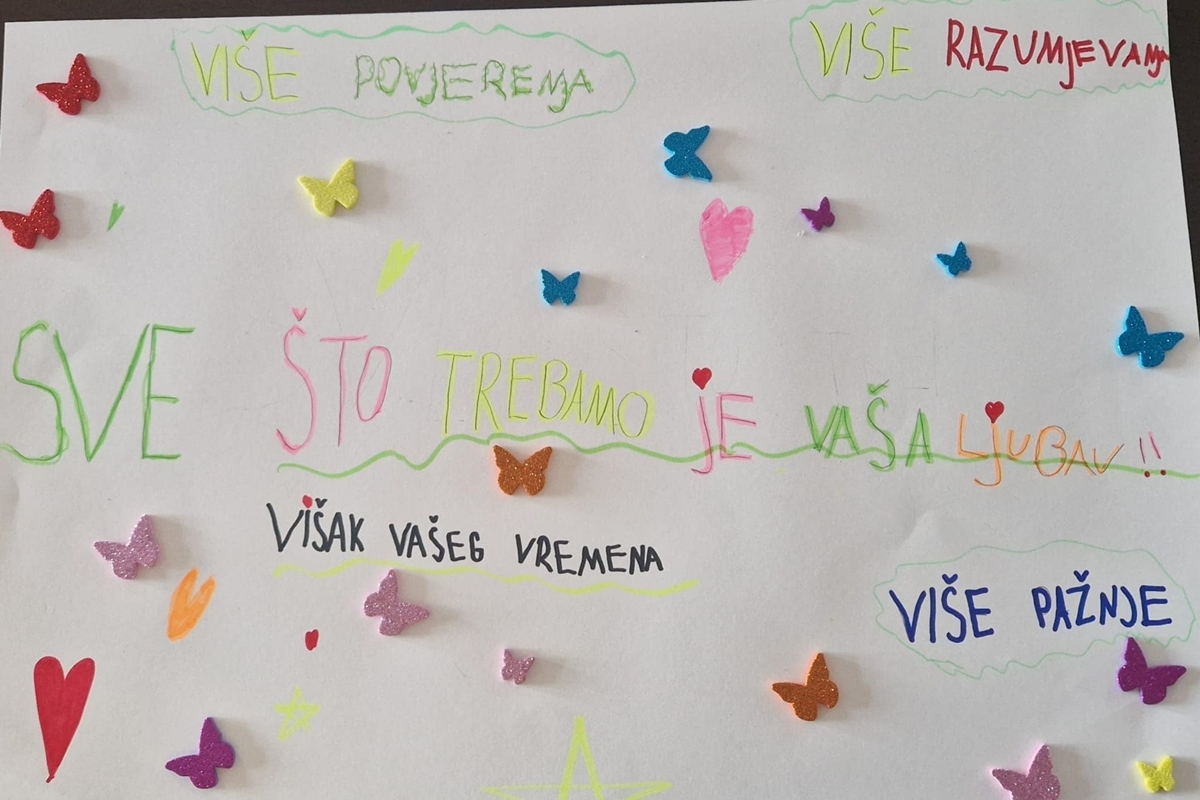 VIŠE POVJERENJA
VIŠE RAZUMJEVANJA
SVE ŠTO TREBAMO JE VAŠA LJUBAV!!
VIŠAK VAŠEG VREMENA
VIŠE PAŽNJE